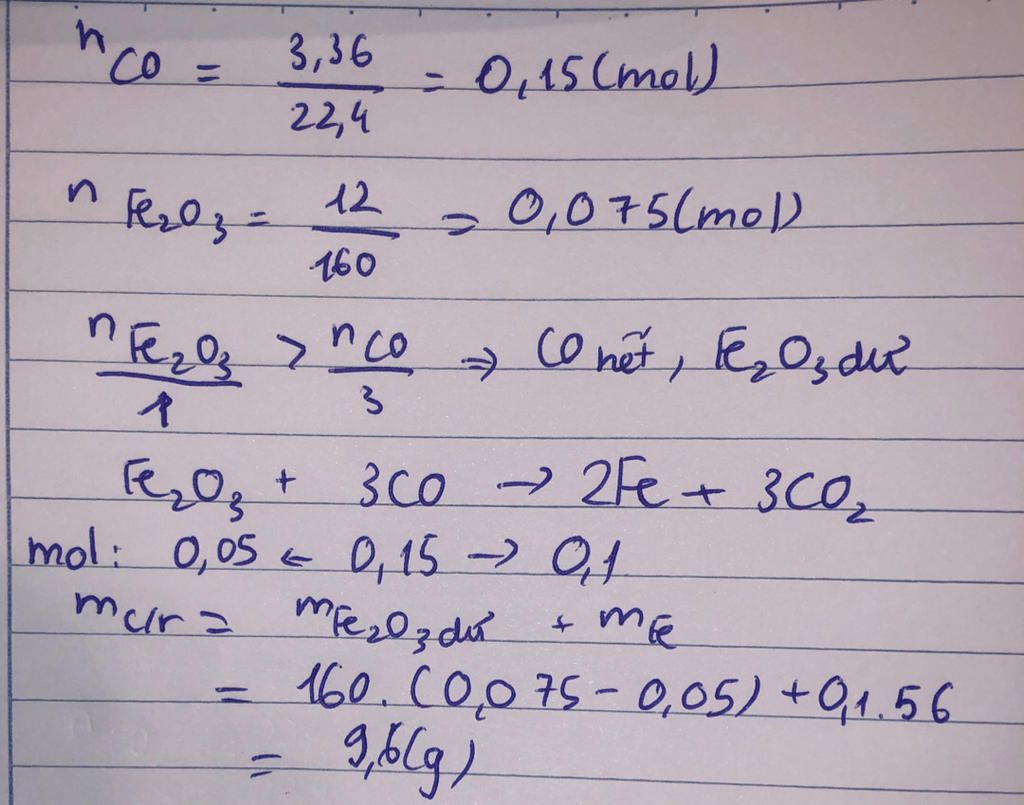 nCO = 3,36/22,4 = 0,15 (mol)
nFe₂O₃ = 12/160 = 0,075 (mol)
nFe₂O₃/1 > nCO/3 ⇒ CO hết, Fe₂O₃ dư
Fe₂O₃ + 3CO → 2Fe + 3CO₂
mol: 0,05 ← 0,15 → 0,1
mc/r = mFe₂O₃ dư + mFe
= 160. (0,075 - 0,05) + 0,1.56
= 9,6 (g)